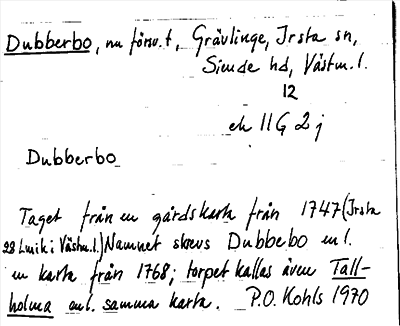 Dubberbo, nu försv. t, Grävlinge, Irsta sn,
Siende hd, Västm. l.
12
ek 11G 2j
Dubberbo
Taget från en gårdskarta från 1747 (Irsta
23 Lmik i Västm. l.) Namnet skrevs Dubbebo enl.
en karta från 1768; torpet kallas även Tall-
holma enl. samma karta. P.O. Kohls 1970